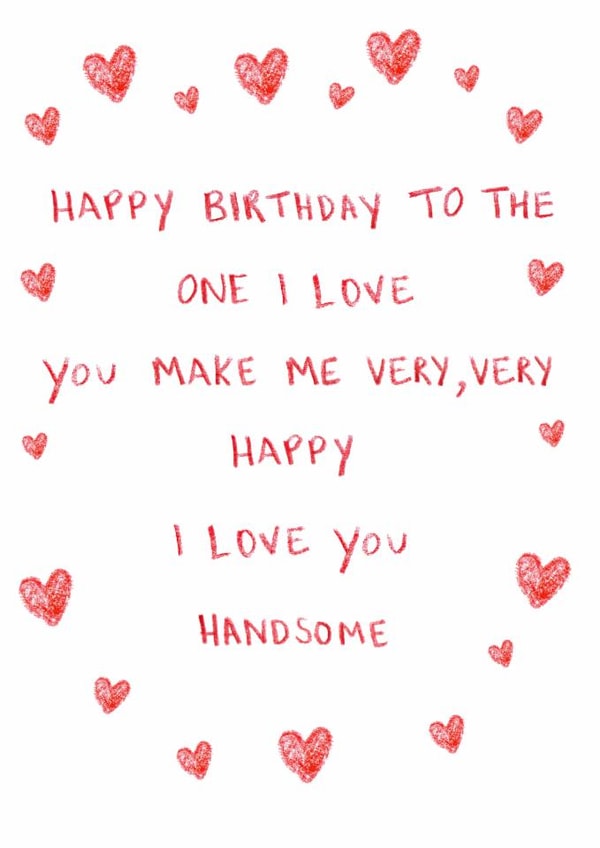 HAPPY BIRTHDAY TO THE
ONE I LOVE
YOU MAKE ME VERY, VERY
HAPPY
I LOVE YOU
HANDSOME